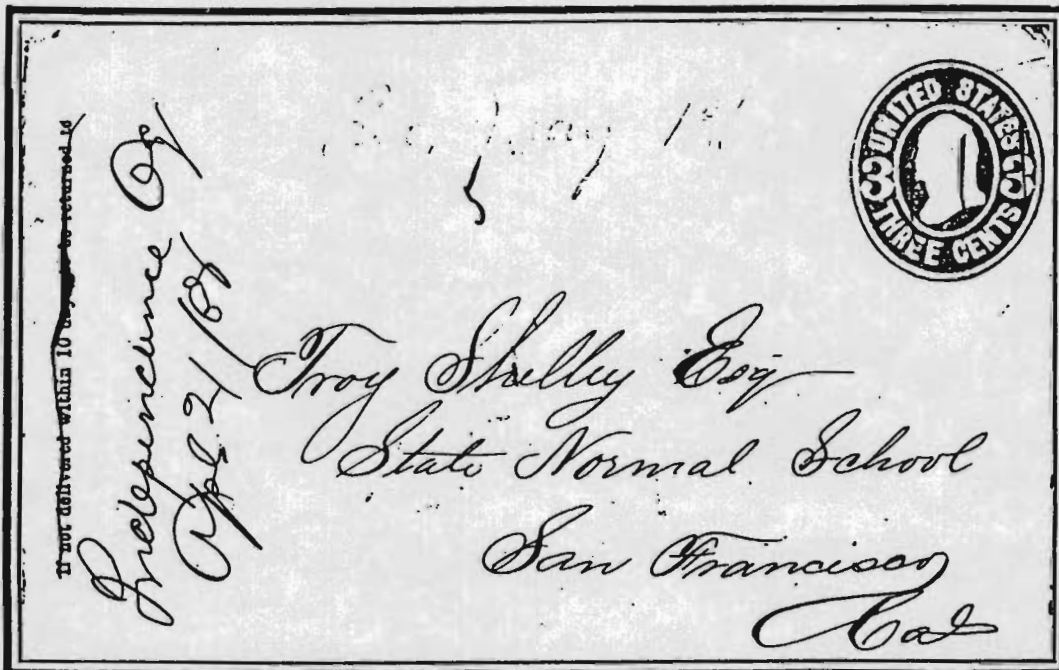 If not delivered within 10 days to be returned to
Independence Og
Apl 21/69
UNITED STATES
3 3
THREE CENTS
Troy Shelley Esq
State Normal School
San Francisco
Cal